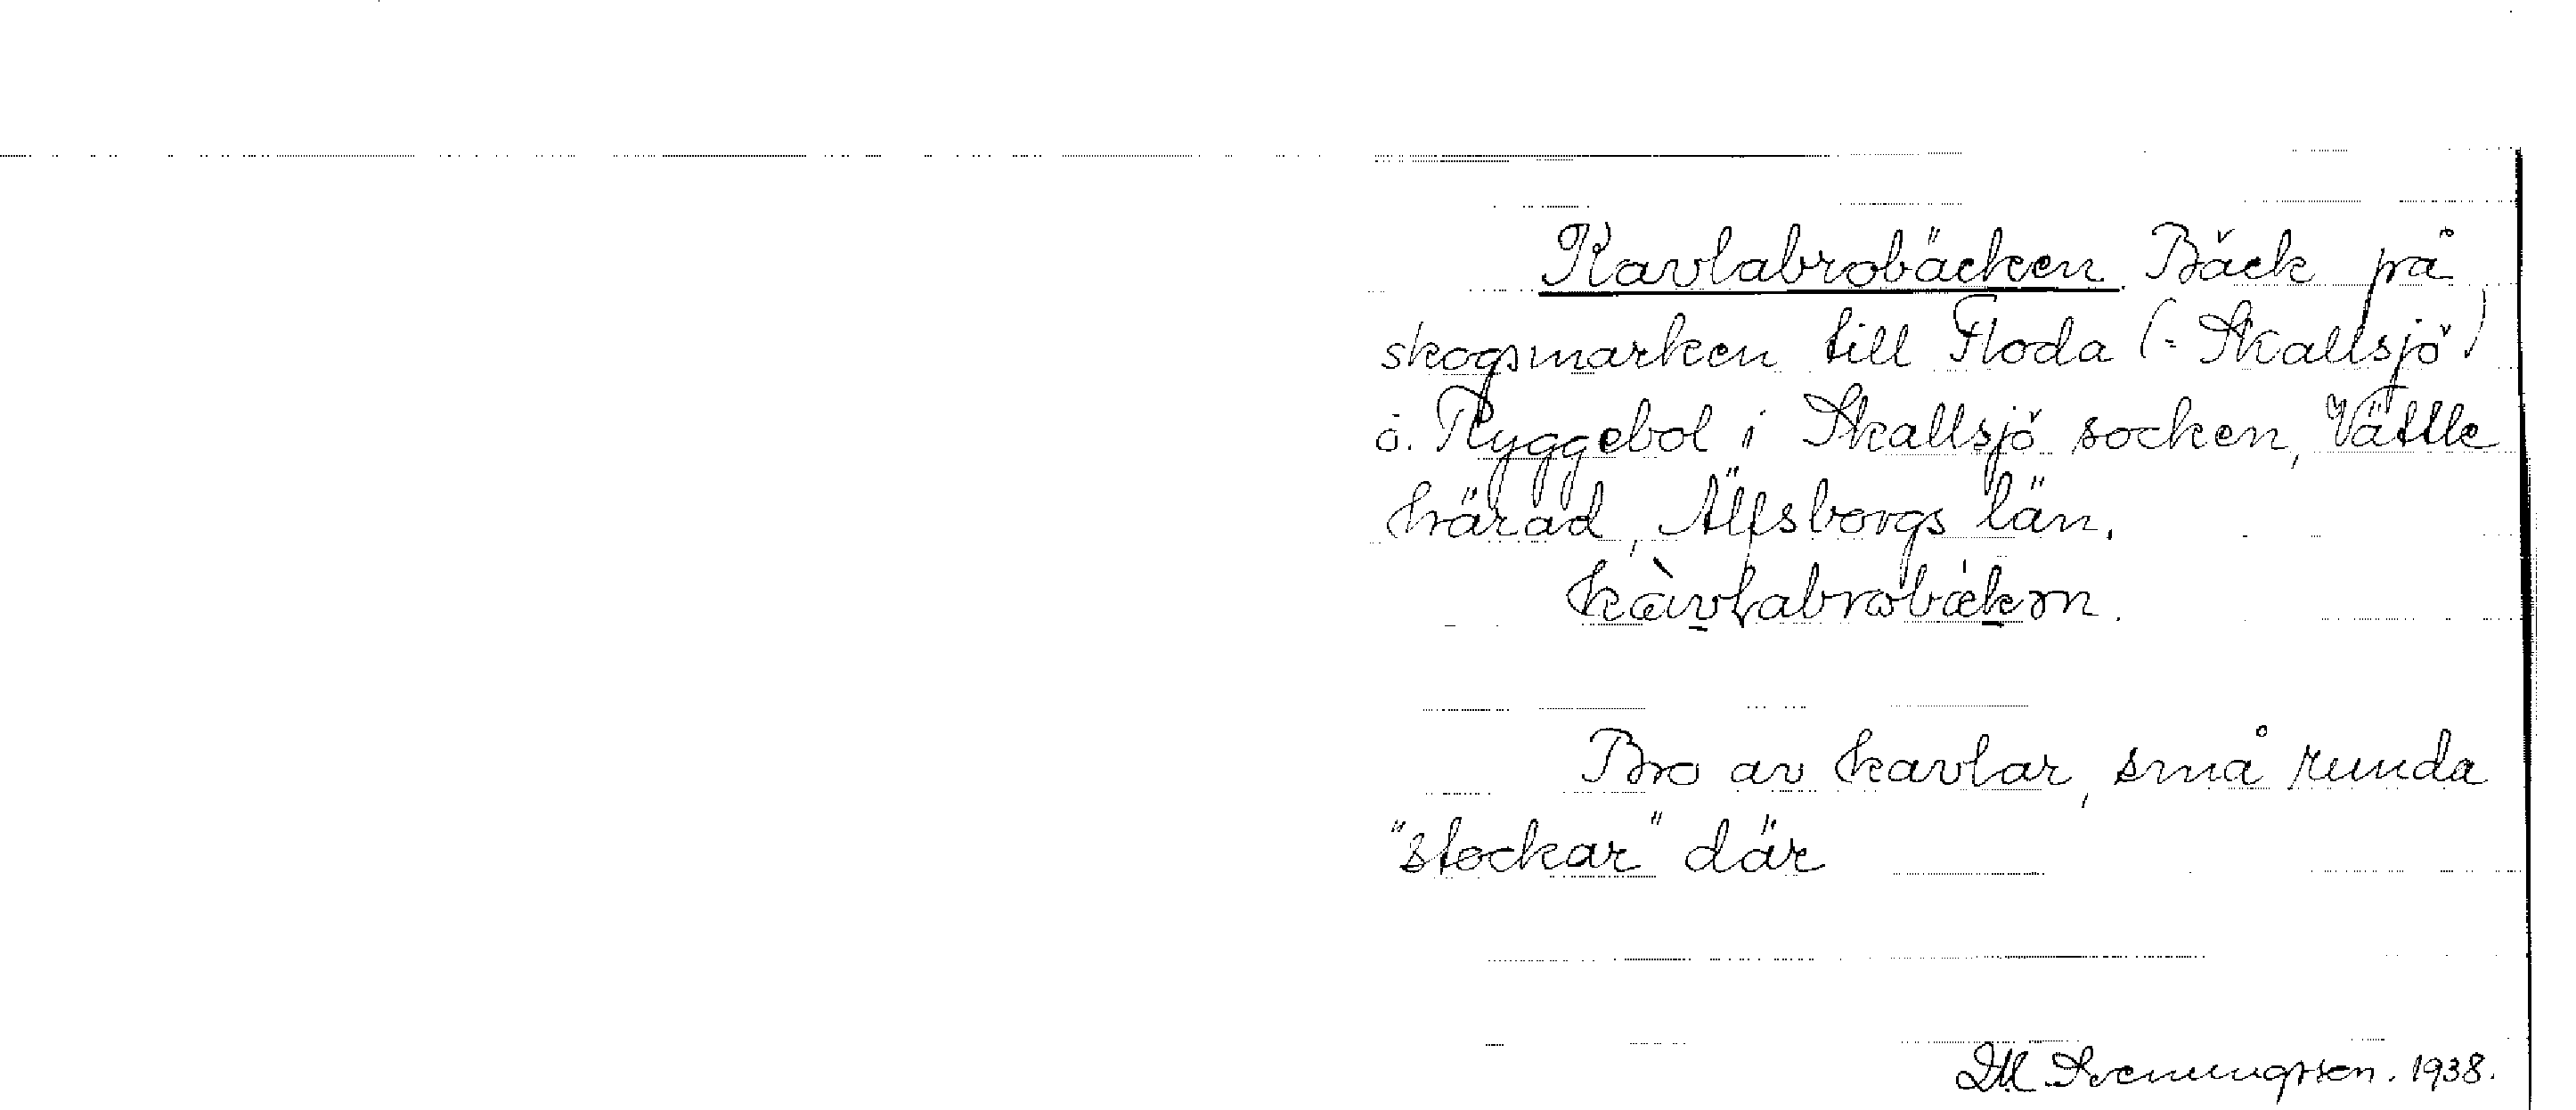 Kavlabrobäcken. Bäck på
skogsmarken till Floda (= Skallsjö)
o. Ryggebol i Skallsjö socken, Vättle
härad, Älfsborgs län.
kàvlabrobækən.
Bro av kavlar, små runda
"stockar" där
DM Svenungsson. 1938.